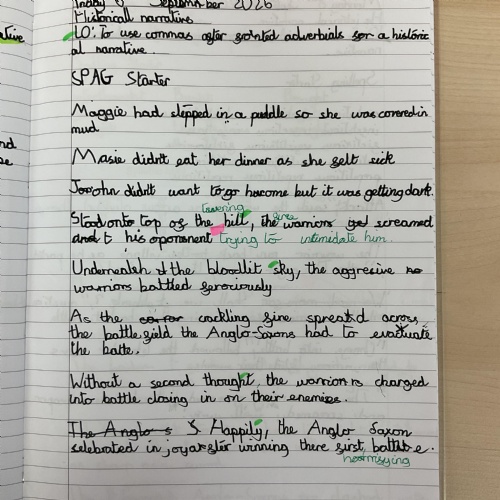 September 2026
Historical narrative
LO: To use commas after fronted adverbials for a historic
al narrative.
SPAG Starter
Maggie had stepped in a puddle so she was covered in
mud
Masie didn't eat her dinner as she felt sick
didn't want to go home but it was getting dark.
towering
Stood onto top of the hill, the fierce warriors yel screamed
his oponent trying to intimidate him.
Underneath the bloodlit sky, the aggresive
warriors battled ferociously
As the crackling fire spread across
the battlefield the Anglo-Saxons had to evactuate
the battle.
Without a second thought, the warriors charged
into battle closing in on their enemies.
The Anglo s Happily, the Anglo Saxon
celebrated in joy after winning there first battle.